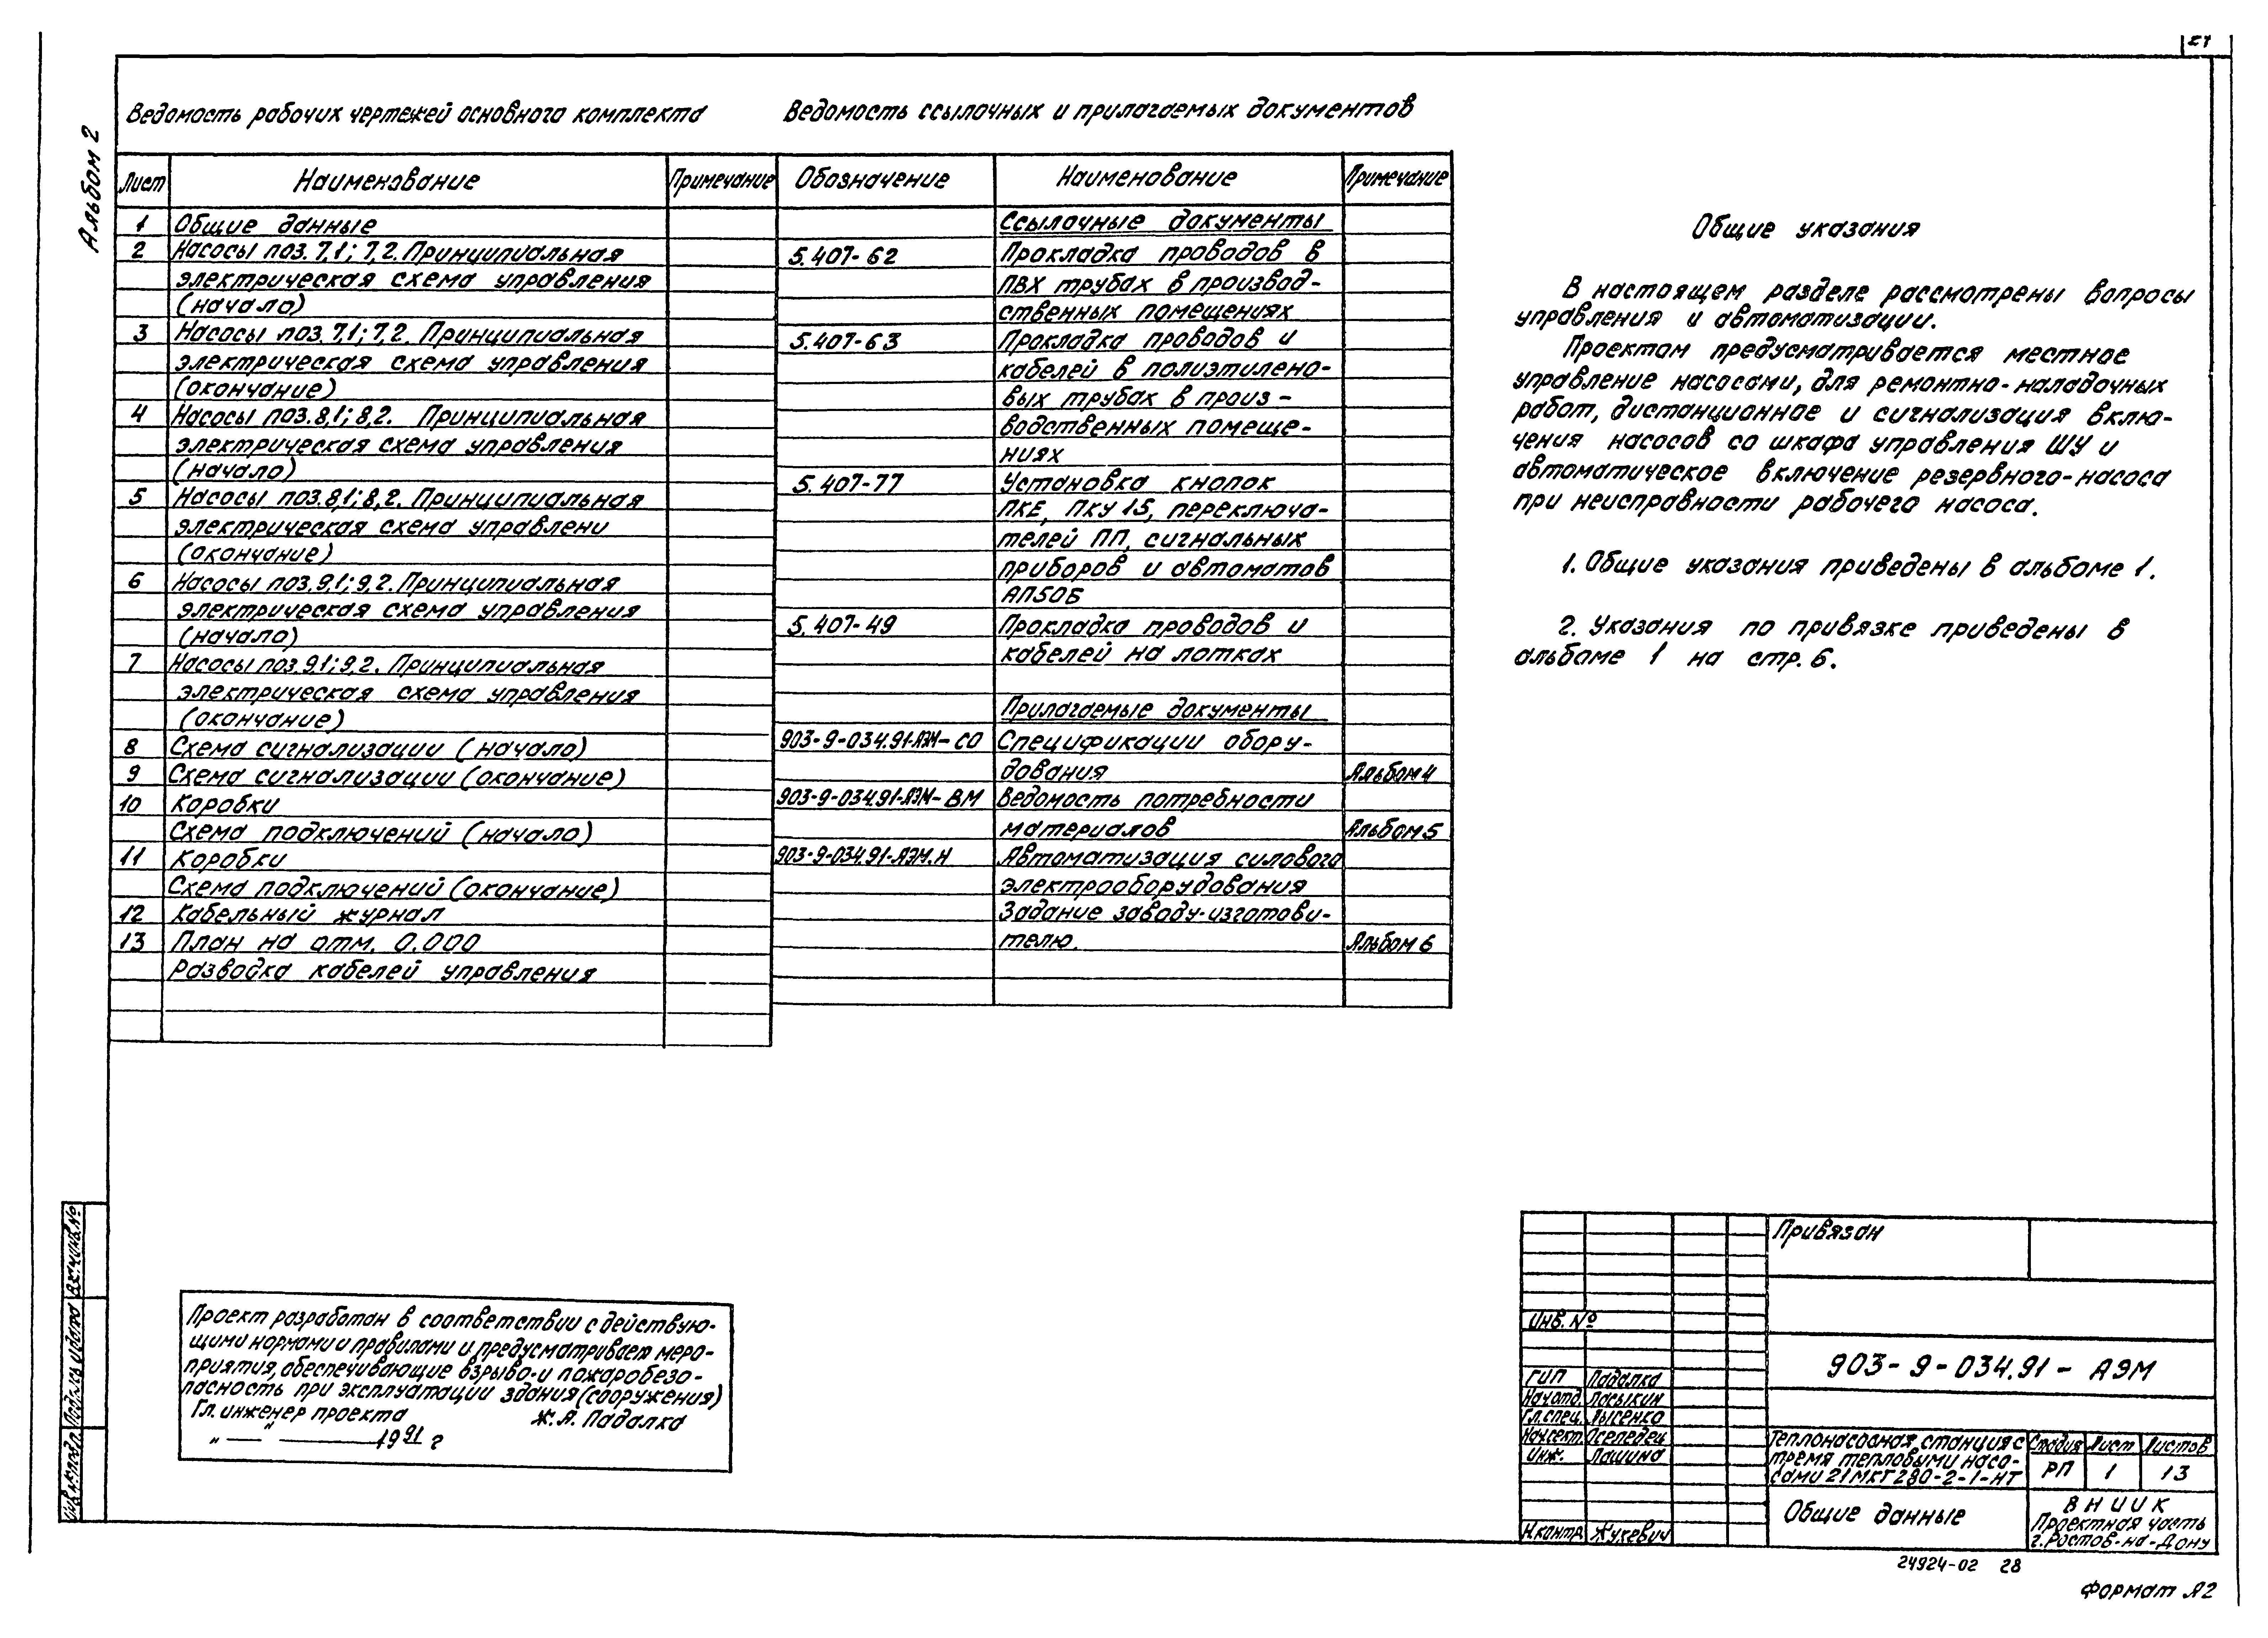 27
Альбом 2
Ведомость рабочих чертежей основного комплекта
Лист Наименование Примечание
1 Общие данные
2 Насосы поз. 7,1; 7,2. Принципиальная
электрическая схема управления
(начало)
3 Насосы поз. 7,1; 7,2. Принципиальная
электрическая схема управления
(окончание)
4 Насосы поз. 8,1; 8,2. Принципиальная
электрическая схема управления
(начало)
5 Насосы поз. 8,1; 8,2. Принципиальная
электрическая схема управлени
(окончание)
6 Насосы поз. 9,1; 9,2. Принципиальная
электрическая схема управления
(начало)
7 Насосы поз. 9,1; 9,2. Принципиальная
электрическая схема управления
(окончание)
8 Схема сигнализации (начало)
9 Схема сигнализации (окончание)
10 Коробки
Схема подключений (начало)
11 Коробки
Схема подключений (окончание)
12 Кабельный журнал
13 План на отм. 0.000
Разводка кабелей управления
Ведомость ссылочных и прилагаемых документов
Обозначение Наименование Примечание
Ссылочные документы
5.407-62 Прокладка проводов в
ПВХ трубах в производ-
ственных помещениях
5.407-63 Прокладка проводов и
кабелей в полиэтилено-
вых трубах в произ-
водственных помеще-
ниях
5.407-77 Установка кнопок
ПКЕ, ПКУ 15, переключа-
телей ПП, сигнальных
приборов и автоматов
АП50Б
5.407-49 Прокладка проводов и
кабелей на лотках
Прилагаемые документы
903-9-034.91-АЭМ-СО Спецификации обору-
дования Альбом 4
903-9-034.91-АЭМ-ВМ Ведомость потребности
материалов Альбом 5
903-9-034.91-АЭМ.Н Автоматизация силового
электрооборудования
Задание заводу-изготови-
телю. Альбом 6
Общие указания
В настоящем разделе рассмотрены вопросы
управления и автоматизации.
Проектом предусматривается местное
управление насосами, для ремонтно-наладочных
работ, дистанционное и сигнализация вклю-
чения насосов со шкафа управления ШУ и
автоматическое включение резервного-насоса
при неисправности рабочего насоса.
1. Общие указания приведены в альбоме 1.
2. Указания по привязке приведены в
альбоме 1 на стр. 6.
Проект разработан в соответствии с действую-
щими нормами и правилами и предусматривает меро-
приятия, обеспечивающие взрыво-и пожаробезо-
пасность при эксплуатации здания (сооружения)
Гл. инженер проекта Ж.А. Падалка
"—" 1991 г
Инв.№ подл. Подпись и дата Взам.инв.№
Привязан
Инв. №
903-9-034.91-АЭМ
ГИП Падалка
Нач.отд. Пасыкин
Гл.спец. Лысенко
Нач.сект. Оселедец
Инж. Пашина
Н.контр. Жукевич
Теплонасосная станция с
тремя тепловыми насо-
сами 21МКТ280-2-1-НТ
Стадия Лист Листов
РП 1 13
Общие данные
ВНИИК
Проектная часть
г. Ростов-на-Дону
24924-02 28
Формат А2